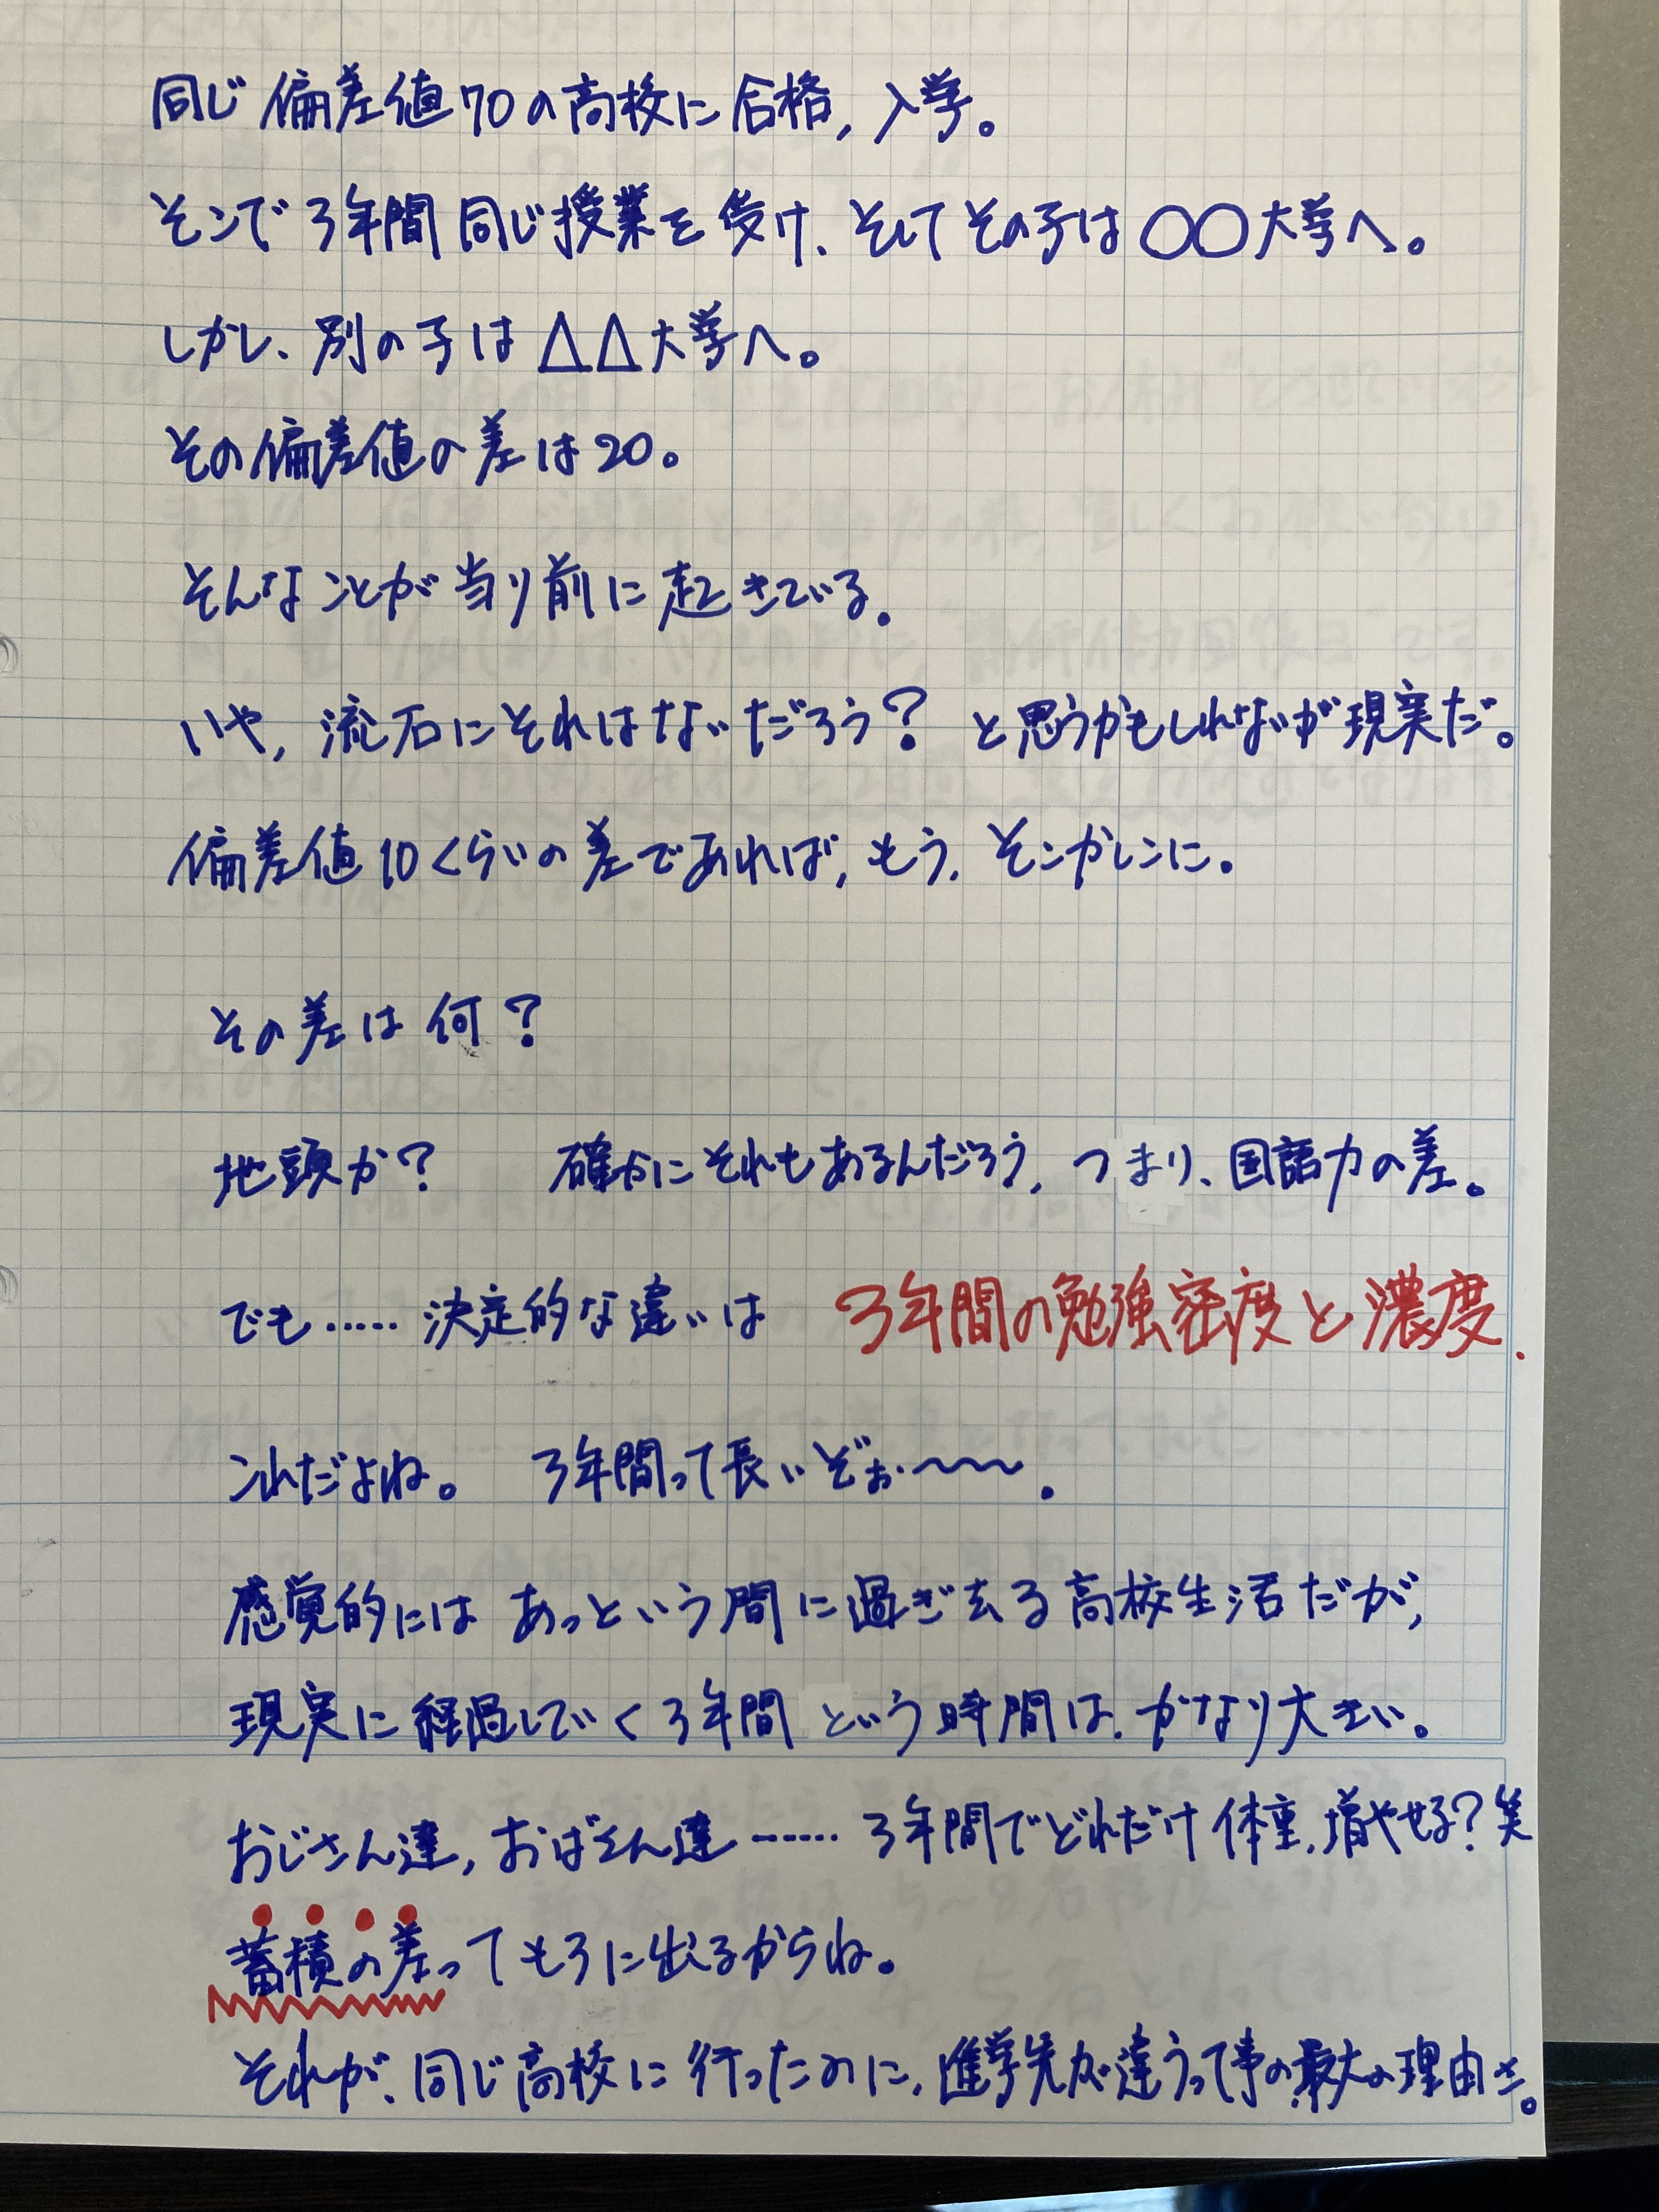 同じ偏差値70の高校に合格,入学。
そこで3年間同じ授業を受け、そしてその子は〇〇大学へ。
しかし、別の子は△△大学へ。
その偏差値の差は20。
そんなことが当り前に起きている。
いや,流石にそれはないだろう?と思うかもしれないが現実だ。
偏差値10くらいの差であれば,もう,そこかしこに。
その差は何?
地頭か? 確かにそれもあるんだろう,つまり、国語力の差。
でも……決定的な違いは 3年間の勉強密度と濃度.
これだよね。 3年間って長いぞぉ〜〜〜.
感覚的にはあっという間に過ぎ去る高校生活だが,
現実に経過していく3年間という時間は,かなり大きい。
おじさん達,おばさん達……3年間でどれだけ体重,増やせる?笑
蓄積の差ってもろに出るからね。
それが、同じ高校に行ったのに,進学先が違うって事の最大の理由さ。